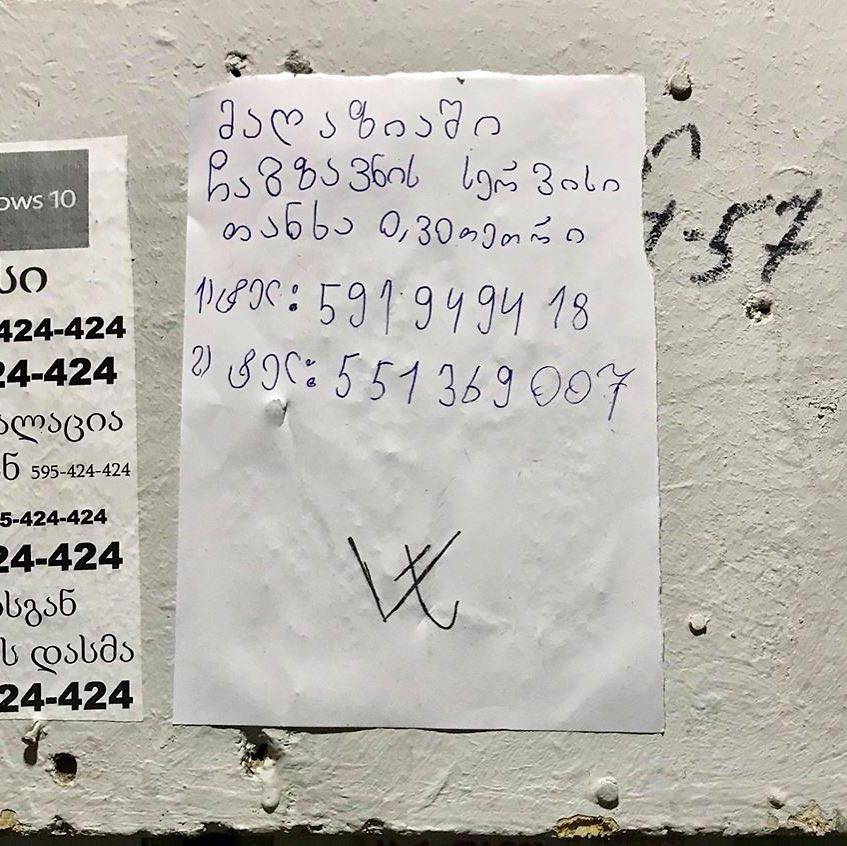 მაღაზიაში
ჩაგზავნის სერვისი
თანხა 0,30 თეთრი
1) ტელ: 591 9494 18
2) ტელ: 551 369 007
ows 10
424-424
24-424
ალაცია
ნ 595-424-424
5-424-424
24-424
სგან
ს დასმა
24-424
-57